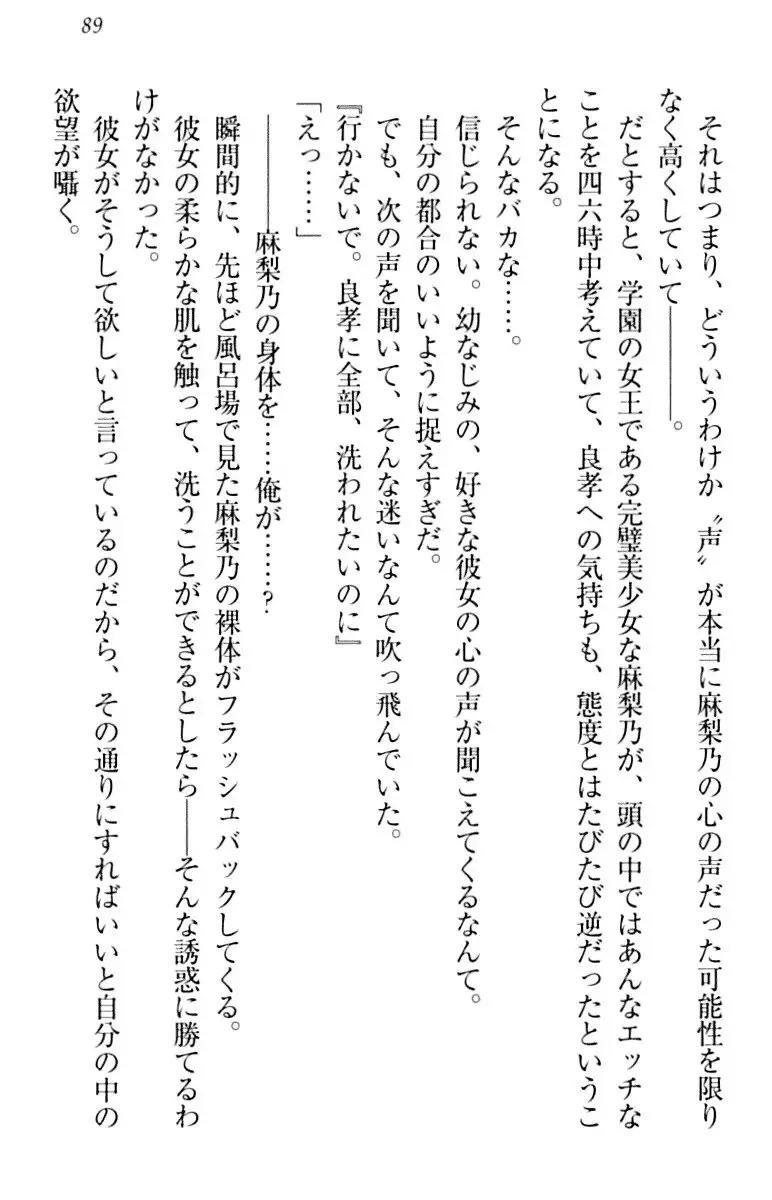 89
それはつまり、どういうわけか〝声〟が本当に麻梨乃の心の声だった可能性を限り
なく高くしていて――――。
だとすると、学園の女王である完璧美少女な麻梨乃が、頭の中ではあんなエッチな
ことを四六時中考えていて、良孝への気持ちも、態度とはたびたび逆だったというこ
とになる。
そんなバカな……。
信じられない。幼なじみの、好きな彼女の心の声が聞こえてくるなんて。
自分の都合のいいように捉えすぎだ。
でも、次の声を聞いて、そんな迷いなんて吹っ飛んでいた。
『行かないで。良孝に全部、洗われたいのに』
「えっ……」
――――麻梨乃の身体を……俺が……?
瞬間的に、先ほど風呂場で見た麻梨乃の裸体がフラッシュバックしてくる。
彼女の柔らかな肌を触って、洗うことができるとしたら――そんな誘惑に勝てるわ
けがなかった。
彼女がそうして欲しいと言っているのだから、その通りにすればいいと自分の中の
欲望が囁く。